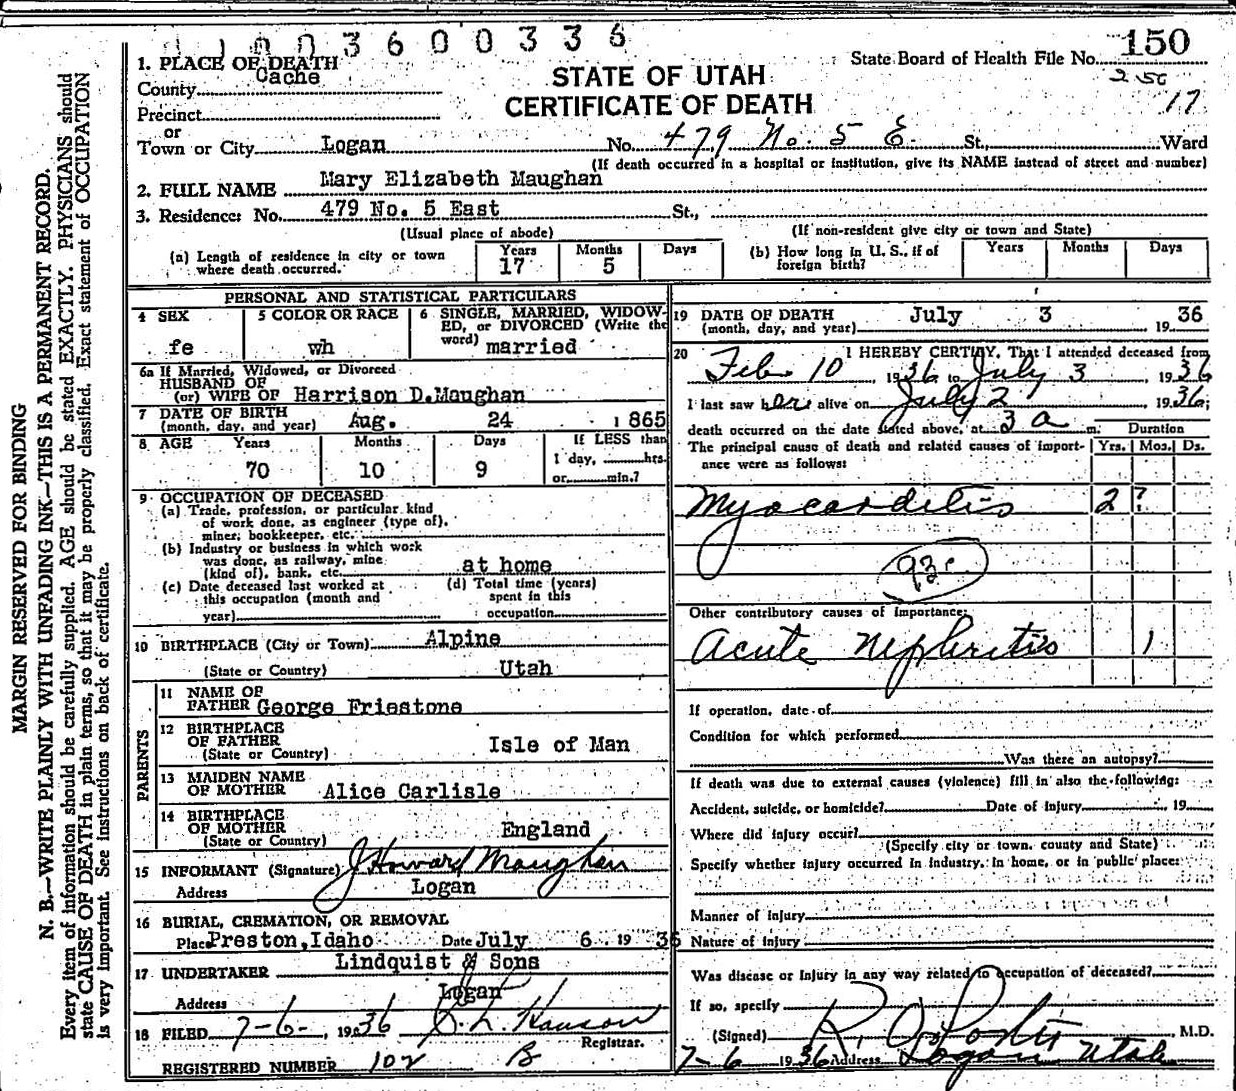 1100360 0336
State Board of Health File No. 150
250
17
STATE OF UTAH
CERTIFICATE OF DEATH
1. PLACE OF DEATH
County Cache
Precinct
or
Town or City Logan No. 479 No. 5 E. St., Ward
(If death occurred in a hospital or institution, give its NAME instead of street and number)
2. FULL NAME Mary Elizabeth Maughan
3. Residence: No. 479 No. 5 East St.,
(Usual place of abode) (If non-resident give city or town and State)
(a) Length of residence in city or town where death occurred. Years 17 Months 5 Days
(b) How long in U. S., if of foreign birth? Years Months Days
PERSONAL AND STATISTICAL PARTICULARS
4 SEX fe
5 COLOR OR RACE wh
6 SINGLE, MARRIED, WIDOWED, or DIVORCED (Write the word) married
6a If Married, Widowed, or Divorced
HUSBAND OF
(or) WIFE OF Harrison D.Maughan
7 DATE OF BIRTH
(month, day, and year) Aug. 24 1865
8 AGE Years 70 Months 10 Days 9
If LESS than
1 day, hrs.
or min.?
9 OCCUPATION OF DECEASED
(a) Trade, profession, or particular kind
of work done, as engineer (type of),
miner, bookkeeper, etc.
(b) Industry or business in which work
was done, as railway, mine
(kind of), bank, etc. at home
(c) Date deceased last worked at
this occupation (month and
year)
(d) Total time (years)
spent in this
occupation
10 BIRTHPLACE (City or Town) Alpine
(State or Country) Utah
PARENTS
11 NAME OF
FATHER George Friestone
12 BIRTHPLACE
OF FATHER
(State or Country) Isle of Man
13 MAIDEN NAME
OF MOTHER Alice Carlisle
14 BIRTHPLACE
OF MOTHER
(State or Country) England
15 INFORMANT (Signature) J Howard Maughan
Address Logan
16 BURIAL, CREMATION, OR REMOVAL
Place Preston, Idaho Date July 6 19 36
17 UNDERTAKER Lindquist & Sons
Address Logan
18 FILED 7-6- 1936 Registrar.
REGISTERED NUMBER 102 B
19 DATE OF DEATH
(month, day, and year) July 3 19 36
20 I HEREBY CERTIFY, That I attended deceased from
Feb 10, 1936 to July 3, 1936
I last saw her alive on July 2 1936;
death occurred on the date stated above, at 3 a m. Duration
The principal cause of death and related causes of importance were as follows: Yrs. Mos. Ds.
Myocarditis 2 ?
93c
Other contributory causes of importance:
Acute Nephritis 1
If operation, date of
Condition for which performed
Was there an autopsy?
If death was due to external causes (violence) fill in also the following:
Accident, suicide, or homicide? Date of injury , 19
Where did injury occur?
(Specify city or town, county and State)
Specify whether injury occurred in industry, in home, or in public place:
Manner of injury
Nature of injury
Was disease or injury in any way related to occupation of deceased?
If so, specify
(Signed) M.D.
7-6 1936 Address Logan Utah
MARGIN RESERVED FOR BINDING
N. B.—WRITE PLAINLY WITH UNFADING INK—THIS IS A PERMANENT RECORD.
Every item of information should be carefully supplied. AGE should be stated EXACTLY. PHYSICIANS should
state CAUSE OF DEATH in plain terms, so that it may be properly classified. Exact statement of OCCUPATION
is very important. See instructions on back of certificate.